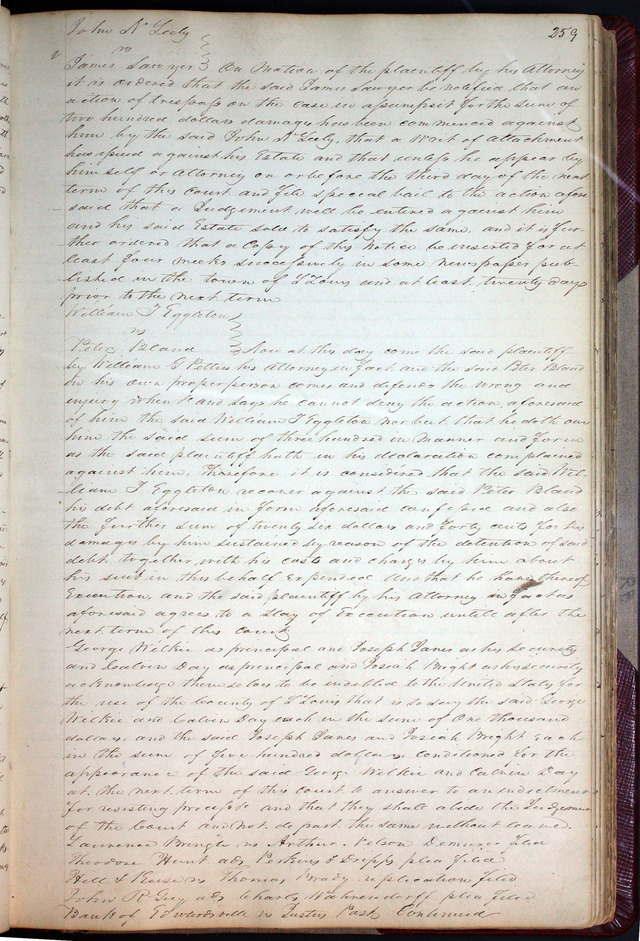 259
John N Seely
vs
James Sawyer On Motion of the plaintiff by his Attorney
it is ordered that the said James Sawyer be notified that an
action of trespass on the case in assumpsit for the sum of
two hundred dollars damages has been commenced against
him by the said John N Seely, that a Writ of Attachment
has issued against his Estate and that unless he appear by
himself or Attorney on or before the third day of the next
term of this court and file special bail to the action afore
said that a Judgement will be entered against him
and his said Estate sold to satisfy the same, and it is fur
ther ordered that a Copy of this Notice be inserted for at
least four weeks successively in some newspaper pub-
lished in the town of St Louis and at least twenty days
prior to the next term
William T Eggleton
vs
Peter Bland Now at this day come the said plaintiff
by William G Pettus his Attorney in fact and the said Peter Bland
in his own proper person comes and defends the wrong and
injury when &c and says he cannot deny the action aforesaid
of him the said William T Eggleton nor but that he doth owe
him the said sum of three hundred in manner and form
as the said plaintiff hath in his declaration complained
against him. Therefore it is considered that the said Wil-
liam T. Eggleton recover against the said Peter Bland
his debt aforesaid in form aforesaid confessed and also
the further sum of twenty six dollars and forty cents for his
damages by him sustained by reason of the detention of said
debt together with his costs and charges by him about
his suit in this behalf Expended And that he have thereof
Execution, and the said plaintiff by his Attorney in fact as
aforesaid agrees to a Stay of Execution untill after the
next term of this Court
George Wilkie as principal and Joseph Janes as his security
and Calvin Day as principal and Josiah Bright as his security
acknowledge themselves to be indebted to the United States for
the use of the County of St Louis that is to say the said George
Wilkie and Calvin Day each in the sum of One thousand
dollars and the said Joseph Janes and Josiah Bright Each
in the sum of five hundred dollars conditioned for the
appearance of the said George Wilkie and Calvin Day
at the next term of this court to answer to an indictment
for resisting process and that they shall abide the Judgement
of the Court and not depart the same without leave.
Laurence Pringle vs Arthur Nelson Demurer filed
Theodore Hunt ads Perkins & Dripps plea filed
Hill & Keese vs Thomas Brady replication filed
John R Guy ads Charls Wahrendorff plea filed
Bank of Edwardsville vs Justus Post Continued